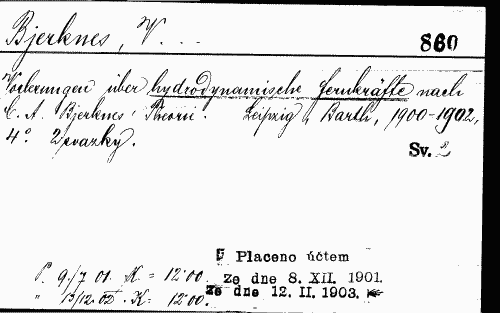 Bjerknes, V. . . .
860
Vorlesungen über hydrodynamische fernkräfte nach
C. A. Bjerknes' Theorie. Leipzig, Barth, 1900-1902,
4°. 2 svazky.
Sv. 2
Placeno účtem
P. 9./7 01. K = 12.00. Ze dne 8. XII. 1901.
" 13/12.02. K = 12.00. Ze dne 12. II. 1903.